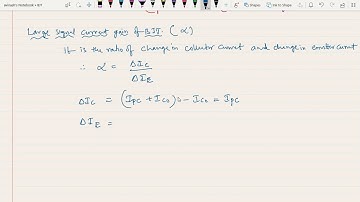 Large signal current gain of BJT. (α)
It is the ratio of change in collector current and change in emitter current
∴ α = ΔIC / ΔIE
ΔIC = (IPC + ICO) - ICO = IPC
ΔIE =